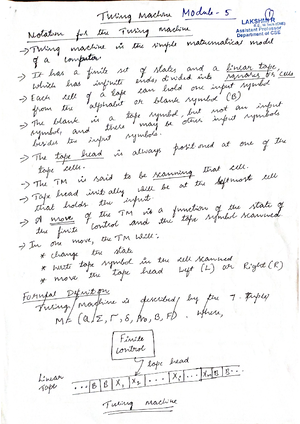 Turing Machine Module - 5
LAKSHMI R
Assistant Professor
Department of CSE
Notation for the Turing Machine
→ Turing machine is the simple mathematical model
of a computer.
→ It has a finite set of states and a linear tape,
which has infinite ends, divided into squares or cells
→ Each cell of a tape can hold one input symbol
from the alphabet or blank symbol (B)
→ The blank is a tape symbol, but not an input
symbol, and there may be other input symbols
besides the input symbols.
→ The tape head is always positioned at one of the
tape cells.
→ The TM is said to be scanning that cell.
→ Tape head initially will be at the leftmost cell
that holds the input
→ A move of the TM is a function of the state of
the finite control and the tape symbol scanned
→ In one move, the TM will:
* change the state
* write tape symbol in the cell scanned
* move the tape head Left (L) or Right (R)
Formal Definition:
Turing Machine is described by the 7-tuples
M = (Q, Σ, Γ, δ, q0, B, F) where,
Finite
control
tape head
Linear
Tape
... B B X1 X2 ... Xi ... Xn B B ...
Turing Machine